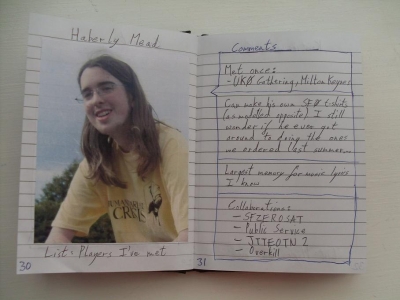 Haberly Mead
List: Players I've met
30
Comments
Met once:
- UKØ Gathering, Milton Keynes
Can make his own SFØ t-shirts
(as modelled opposite) I still
wonder if he ever got
around to doing the ones
we ordered last summer...
Largest memory for movie lyrics
I know
Collaborations:
- SFZEROSAT
- Public Service
- JTTEOTN 2
- Overkill
31